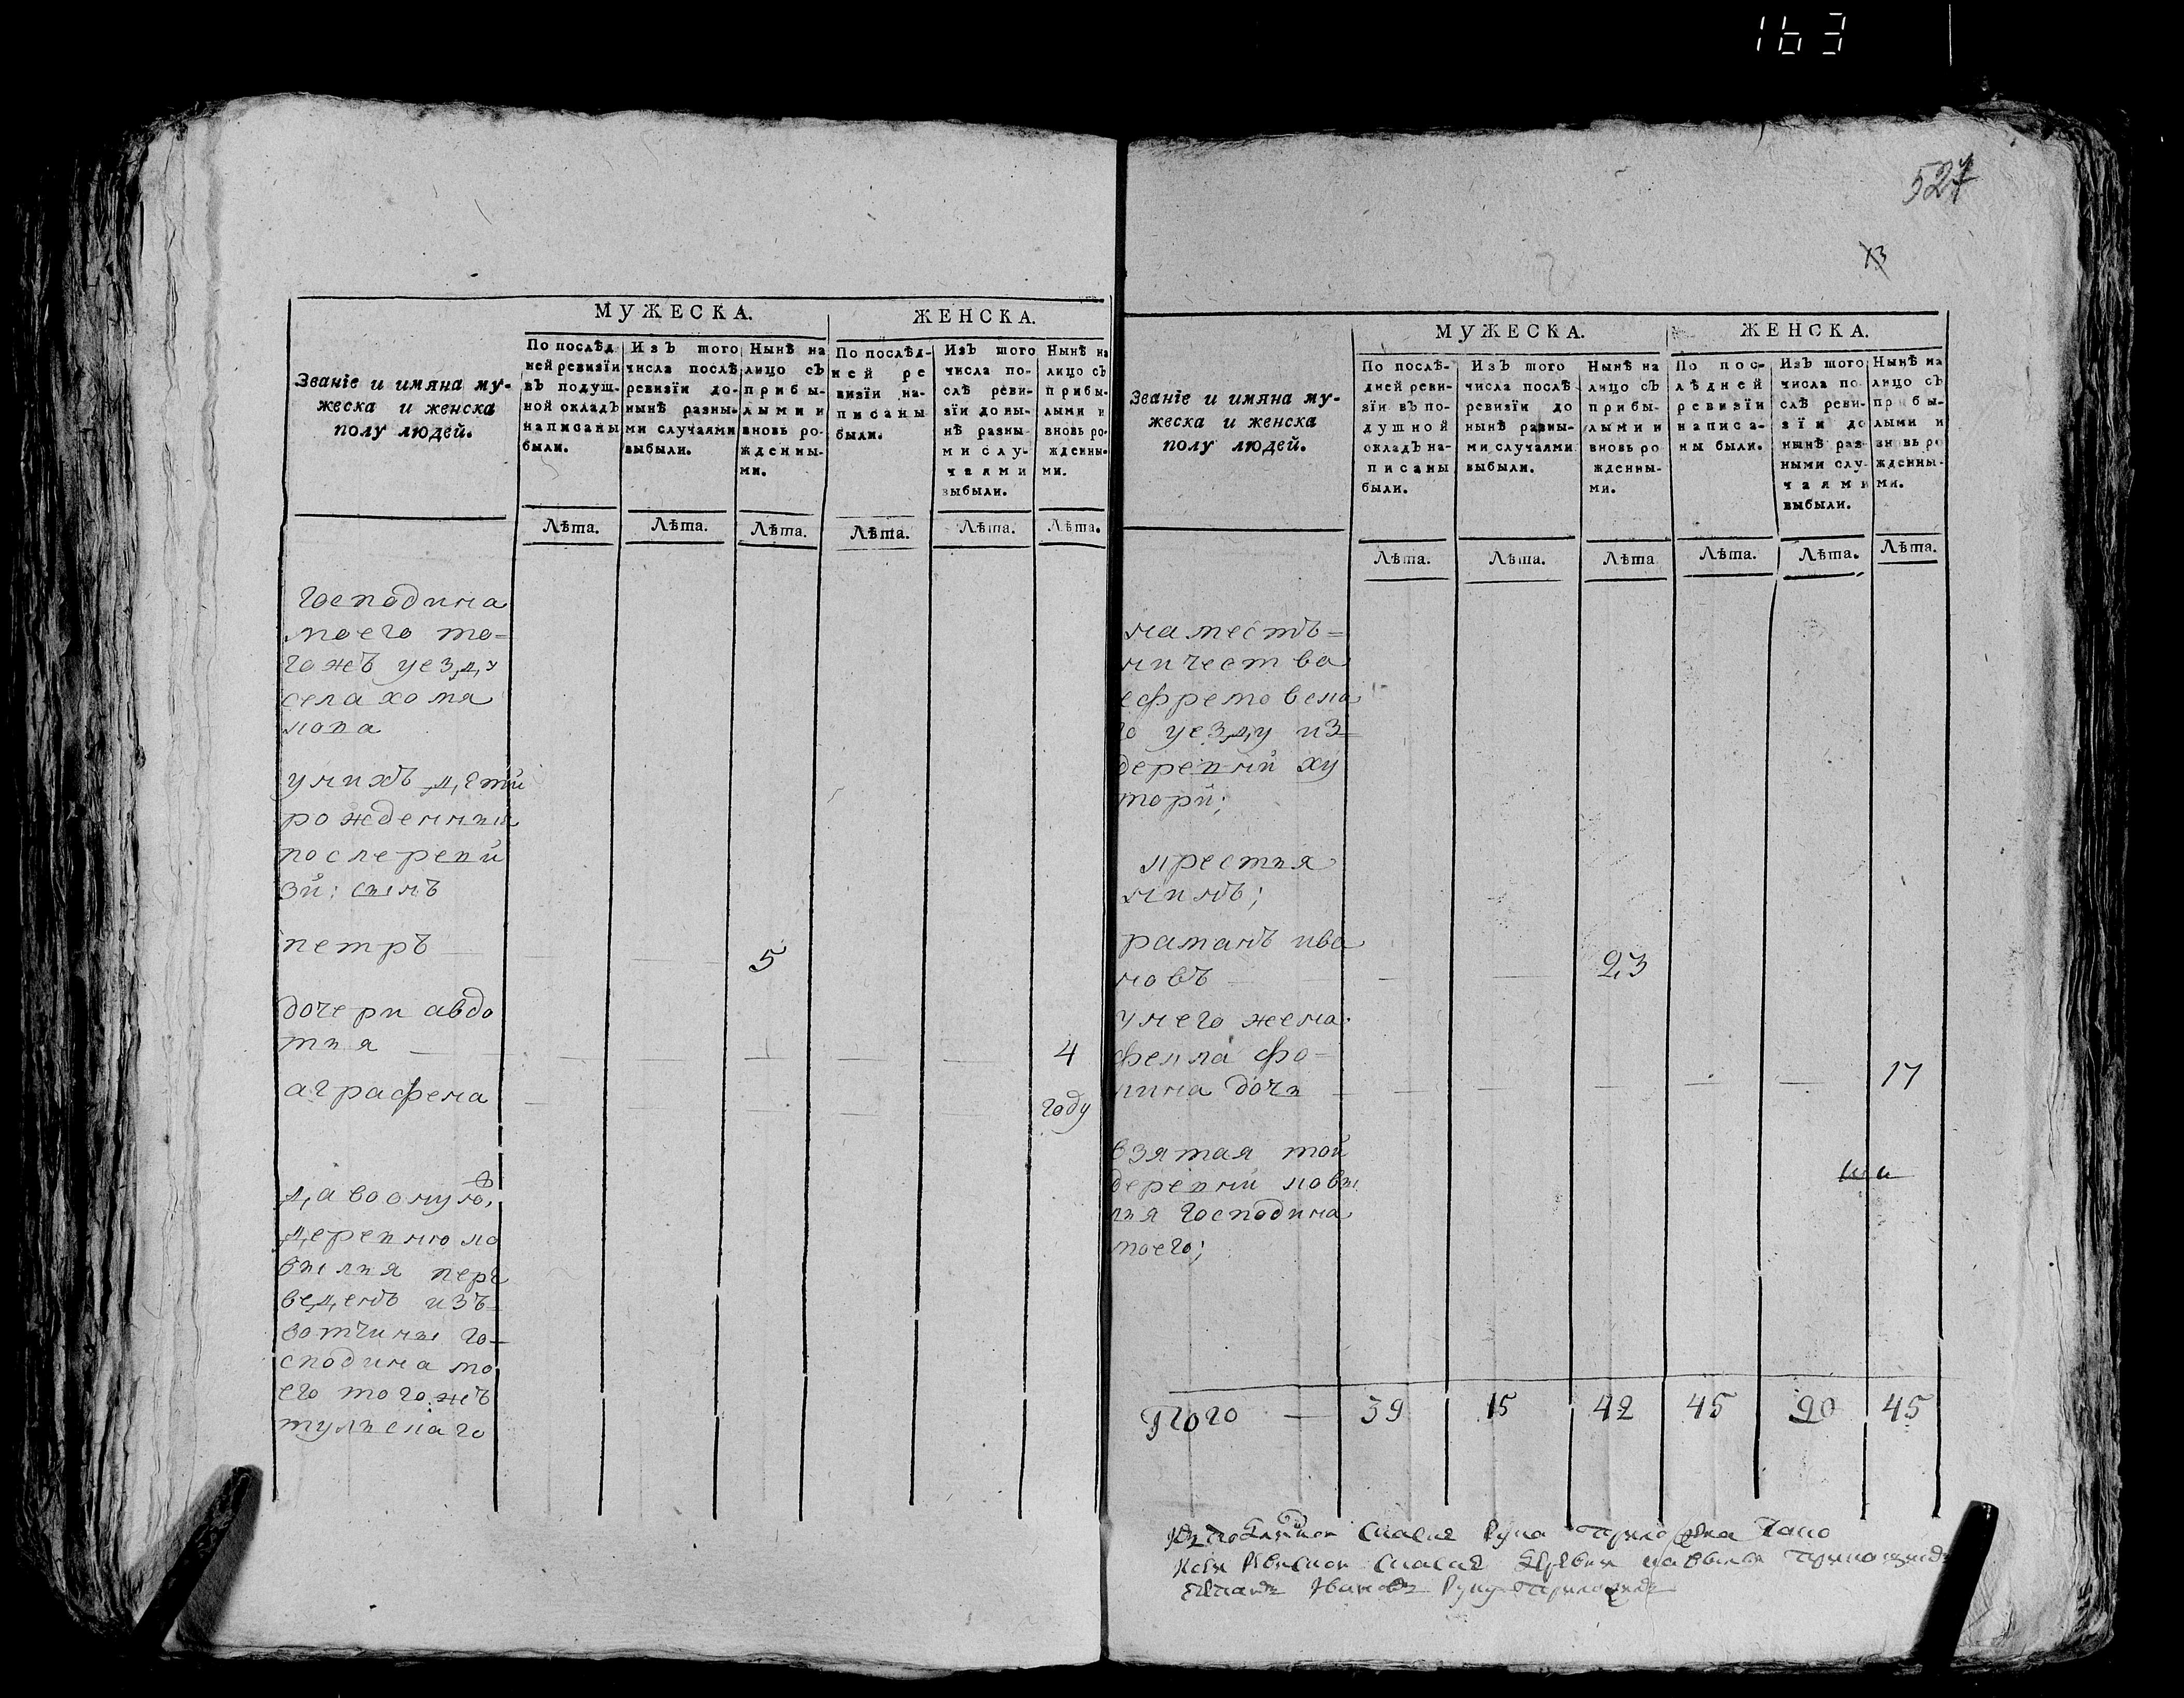 163
527
13
МУЖЕСКА.
ЖЕНСКА.
Званіе и имяна му-
жеска и женска
полу людей.
По послѣд
ней ревизіи
въ подуш-
ной окладъ
написаны
были.
Изъ того
числа послѣ
ревизіи до-
нынѣ разны-
ми случаями
выбыли.
Нынѣ на
лицо съ
прибы-
лыми и
вновь ро-
жденны-
ми.
По послѣд-
ней ре
визіи на-
писаны
были.
Изъ того
числа по-
слѣ реви-
зіи до ны-
нѣ разны
ми слу-
чаями
выбыли.
Нынѣ на
лицо съ
прибы-
лыми и
вновь ро-
жденны-
ми.
Лѣта.
Лѣта.
Лѣта.
Лѣта.
Лѣта.
Лѣта.
господина
моего то=
гожъ уезду
села хомя
кова
унихъ дети
рожденныя
послереви
зи: сынъ
петръ 5
дочери авдо
тья 4
аграфена году
давооную
деревню ко
былья пере
веденъ изъ=
вотчины го-
сподина мо
его тогожъ
тульскаго
МУЖЕСКА.
ЖЕНСКА.
Званіе и имяна му-
жеска и женска
полу людей.
По послѣ-
дней реви-
зіи въ по-
душной
окладъ на-
писаны
были.
Изъ того
числа послѣ
ревизіи до
нынѣ разны-
ми случаями
выбыли.
Нынѣ на
лицо съ
прибы-
лыми и
вновь ро
жденны-
ми.
По пос-
лѣдней
ревизіи
написа-
ны были.
Изъ того
числа по
слѣ реви-
зіи до
нынѣ раз-
ными слу-
чаями
выбыли.
Нынѣ на
лицо съ
прибы-
лыми и
вновь ро
жденны-
ми.
Лѣта.
Лѣта.
Лѣта
Лѣта.
Лѣта.
Лѣта.
наместъ=
ничества
ефремовска
го уезду из=
деревни ху
тори;
крестья
нинъ;
раманъ ива
новъ 23
унего жена
фекла фо-
кина дочь 17
взятая той
деревни кобы
лья господина
моего;
Итого 39 15 42 45 20 45
Иванов руку приложил